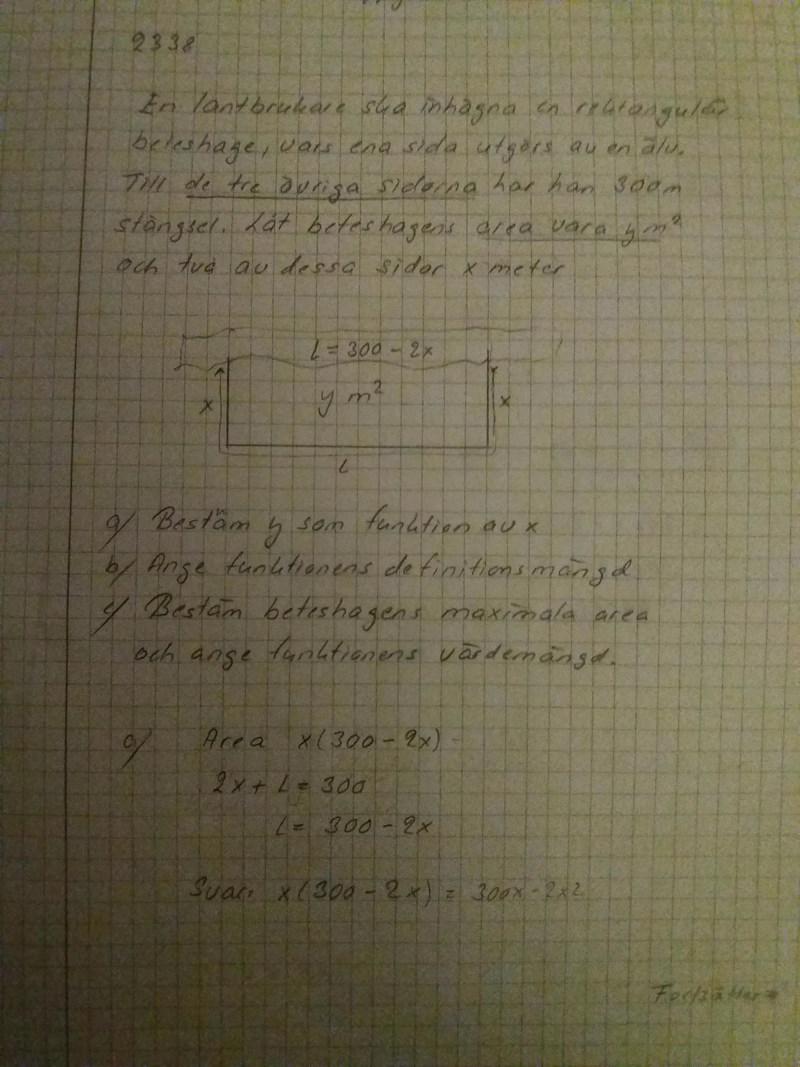 2338
En lantbrukare ska inhägna en rektangulär
beteshage, vars ena sida utgörs av en älv.
Till de tre övriga sidorna har han 300m
stängsel. Låt beteshagens area vara y m²
och två av dessa sidor x meter
L = 300 - 2x
x
y m²
x
L
a/ Bestäm y som funktion av x
b/ Ange funktionens definitionsmängd
c/ Bestäm beteshagens maximala area
och ange funktionens värdemängd.
a/ Area x(300 - 2x)
2x + L = 300
L = 300 - 2x
Svar: x(300 - 2x) = 300x - 2x2
Fortsätter